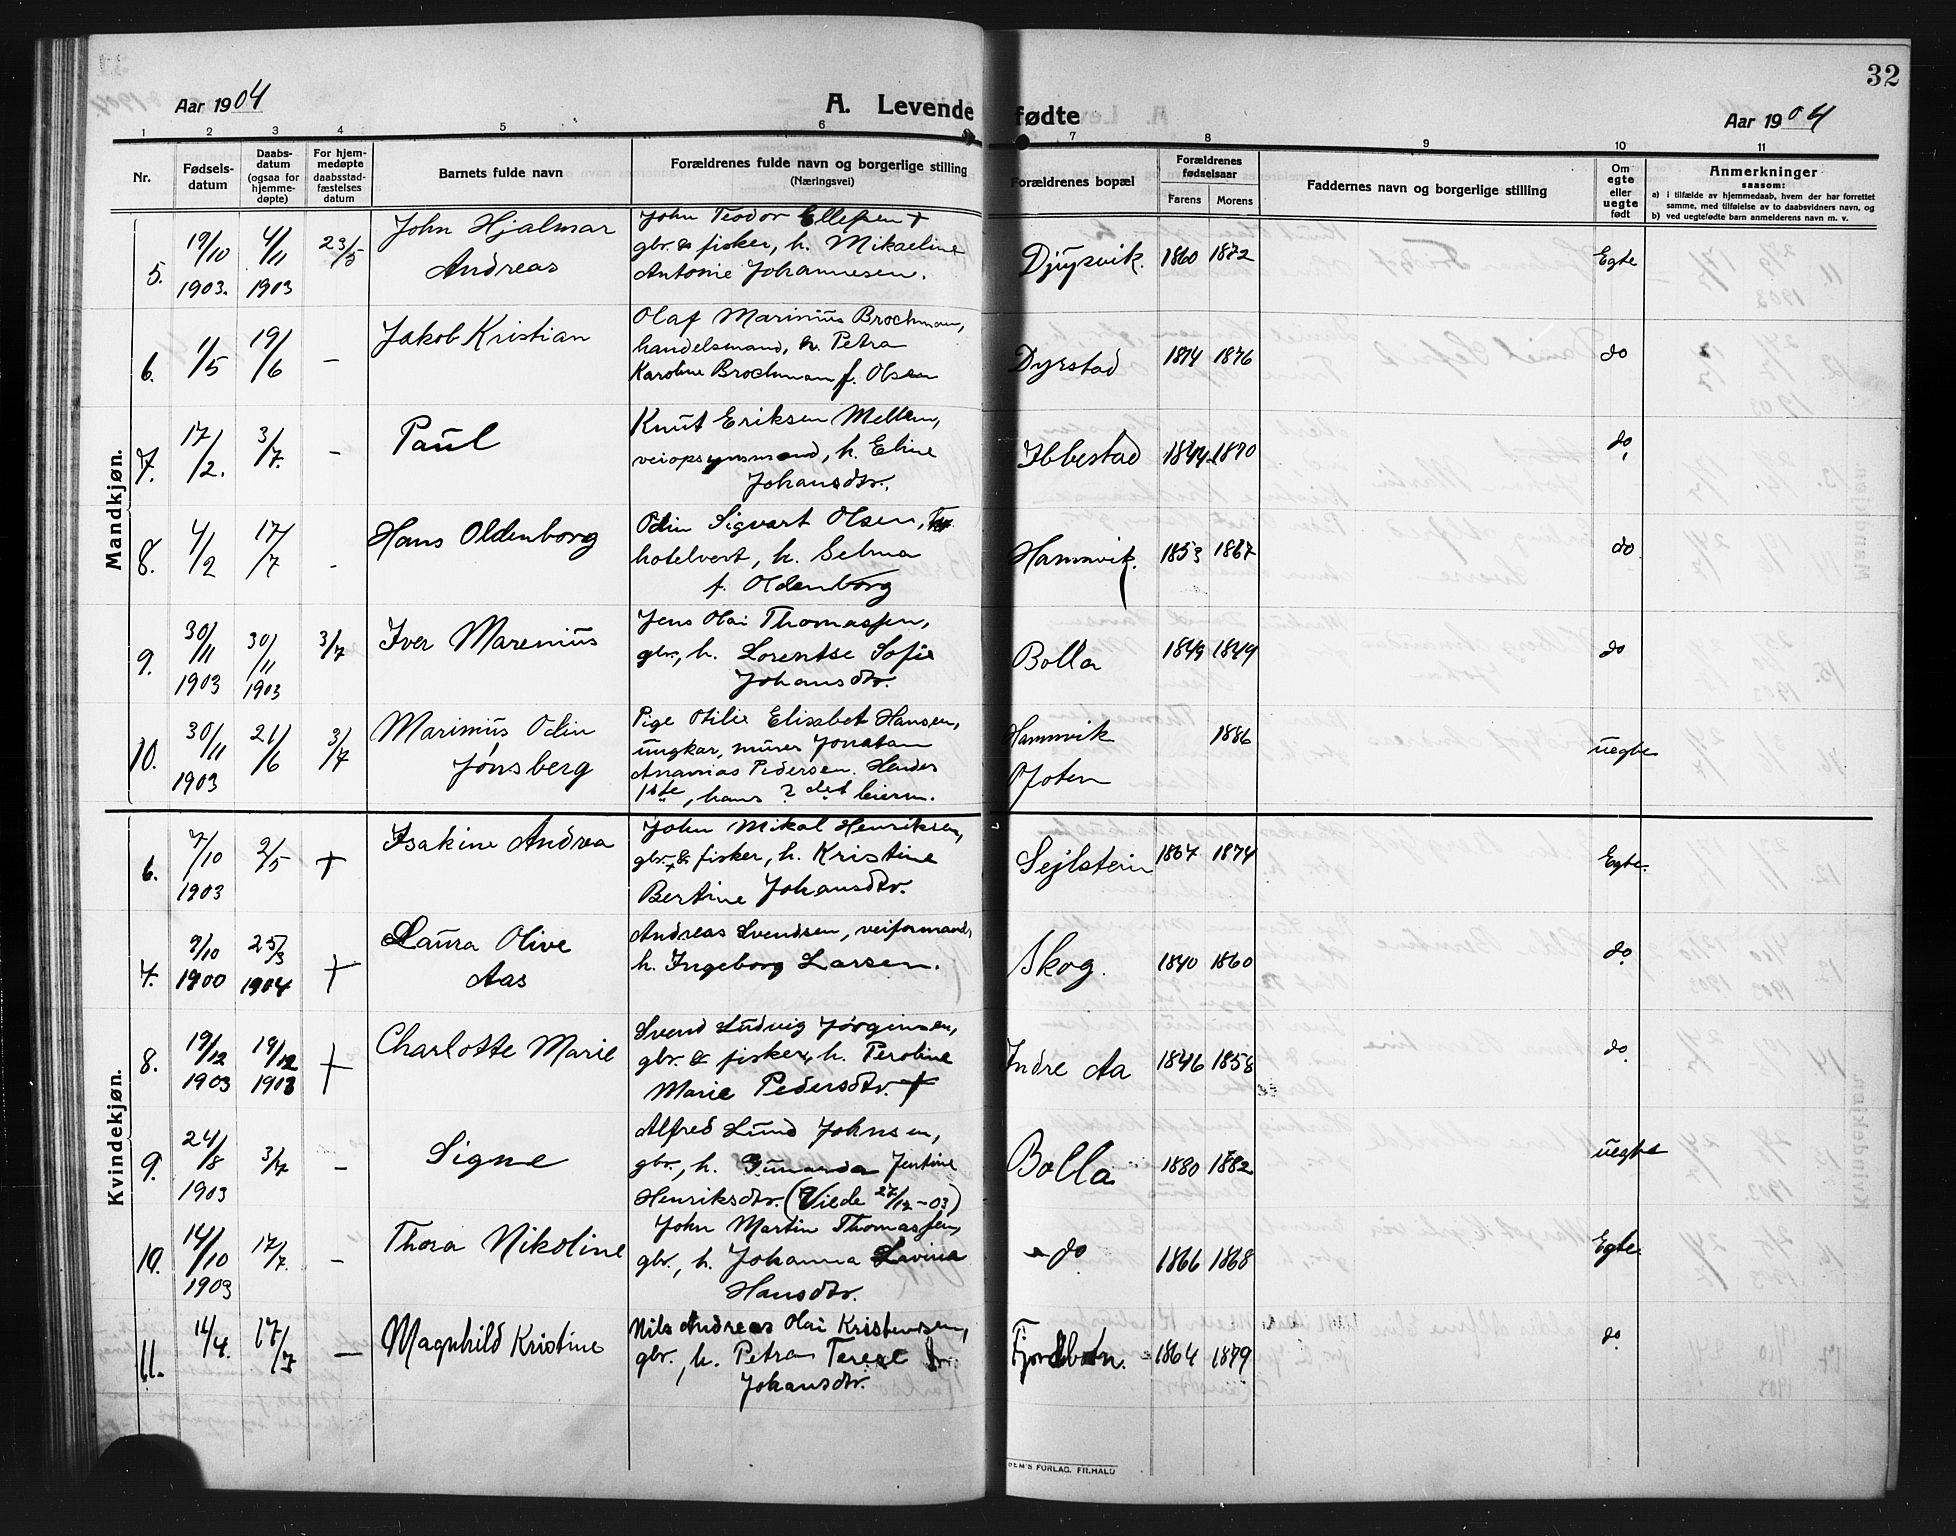 32
Aar 1904
A. Levende fødte
Aar 1904
1 2 3 4 5 6 7 8 9 10 11
Nr.
Fødsels-
datum
Daabs-
datum
(ogsaa for
hjemme-
døpte)
For hjem-
medøpte
daabsstad-
fæstelses
datum
Barnets fulde navn
Forældrenes fulde navn og borgerlige stilling
(Næringsvei)
Forældrenes bopæl
Forældrenes
fødselsaar
Farens Morens
Faddernes navn og borgerlige stilling
Om
egte
eller
uegte
født
Anmerkninger
saasom:
a) i tilfælde av hjemmedaab, hvem der har forrettet
samme, med tilføielse av to daabsvidners navn, og
b) ved uegtefødte barn anmelderens navn m. v.
Mandkjøn.
5. 19/10 1903. 4/11 1903 23/5
John Hjalmar
Andreas
John Teodor Ellefsen +
gbr. & fisker, h. Mikaeline
Antonie Johannesen.
Djupvik. 1860 1872 Egte
6. 1/5 19/6 -
Jakob Kristian
Olaf Marinius Brochman,
handelsmand, h. Petra
Karoline Brochman f. Olsen
Dyrstad 1874 1876 do
7. 17/2. 3/7. -
Paul
Knut Eriksen Mellem,
veiopsynsmand, h. Eline
Johansdtr.
Ibbestad 1844 1870 do
8. 4/2 17/7 -
Hans Oldenborg
Odin Sigvart Olsen,
hotelvert, h. Selma
f. Oldenborg
Hamnvik. 1853 1867 do
9. 30/11 1903 30/11 1903 3/7
Iver Marenius
Jens Olai Thomassen,
gbr., h. Lorentse Sofie
Johansdtr.
Bolla 1849 1849 do
10. 30/11 1903 21/6 3/7
Marinius Odin
Jønsberg
Pige Otilie Elisabet Hansen,
ungkar, murer Jonatan
Ananias Pedersen. Hendes
1ste, hans 2det leierm.
Hamnvik
Ofoten
1886 uegte
Kvindekjøn.
6. 7/10 1903 2/5 +
Isakine Andrea
John Mikal Henriksen,
gbr. & fisker, h. Kristine
Bertine Johansdtr.
Sejlstein 1867 1874 Egte.
7. 9/10 1900 25/3 1904 +
Laura Olive
Aas
Andreas Svendsen, veiformand,
h. Ingeborg Larsen.
Skog. 1840 1860 do
8. 19/12 1903 19/12 1903 +
Charlotte Marie
Svend Ludvig Jørginsen,
gbr. & fisker, h. Peroline
Marie Pedersdtr. +
Indre Aa 1846 1858 do
9. 24/8 1903 3/7 -
Signe
Alfred Lund Johnsen,
gbr., h. Gunarda Jentine
Henriksdtr. (Viede 27/12-03)
Bolla 1880 1882 uegte
10. 14/10 1903 17/7. -
Thora Nikoline
John Martin Thomassen,
gbr., h. Johanna Lavina
Hansdtr.
- do 1866 1868 Egte.
11. 14/4. 17/7 -
Magnhild Kristine
Nils Andreas Olai Kristensen,
gbr., h. Petra Terese
Johansdtr.
Fjordbotn. 1864 1879 do.
SEM'S FORLAG, FR.HALD